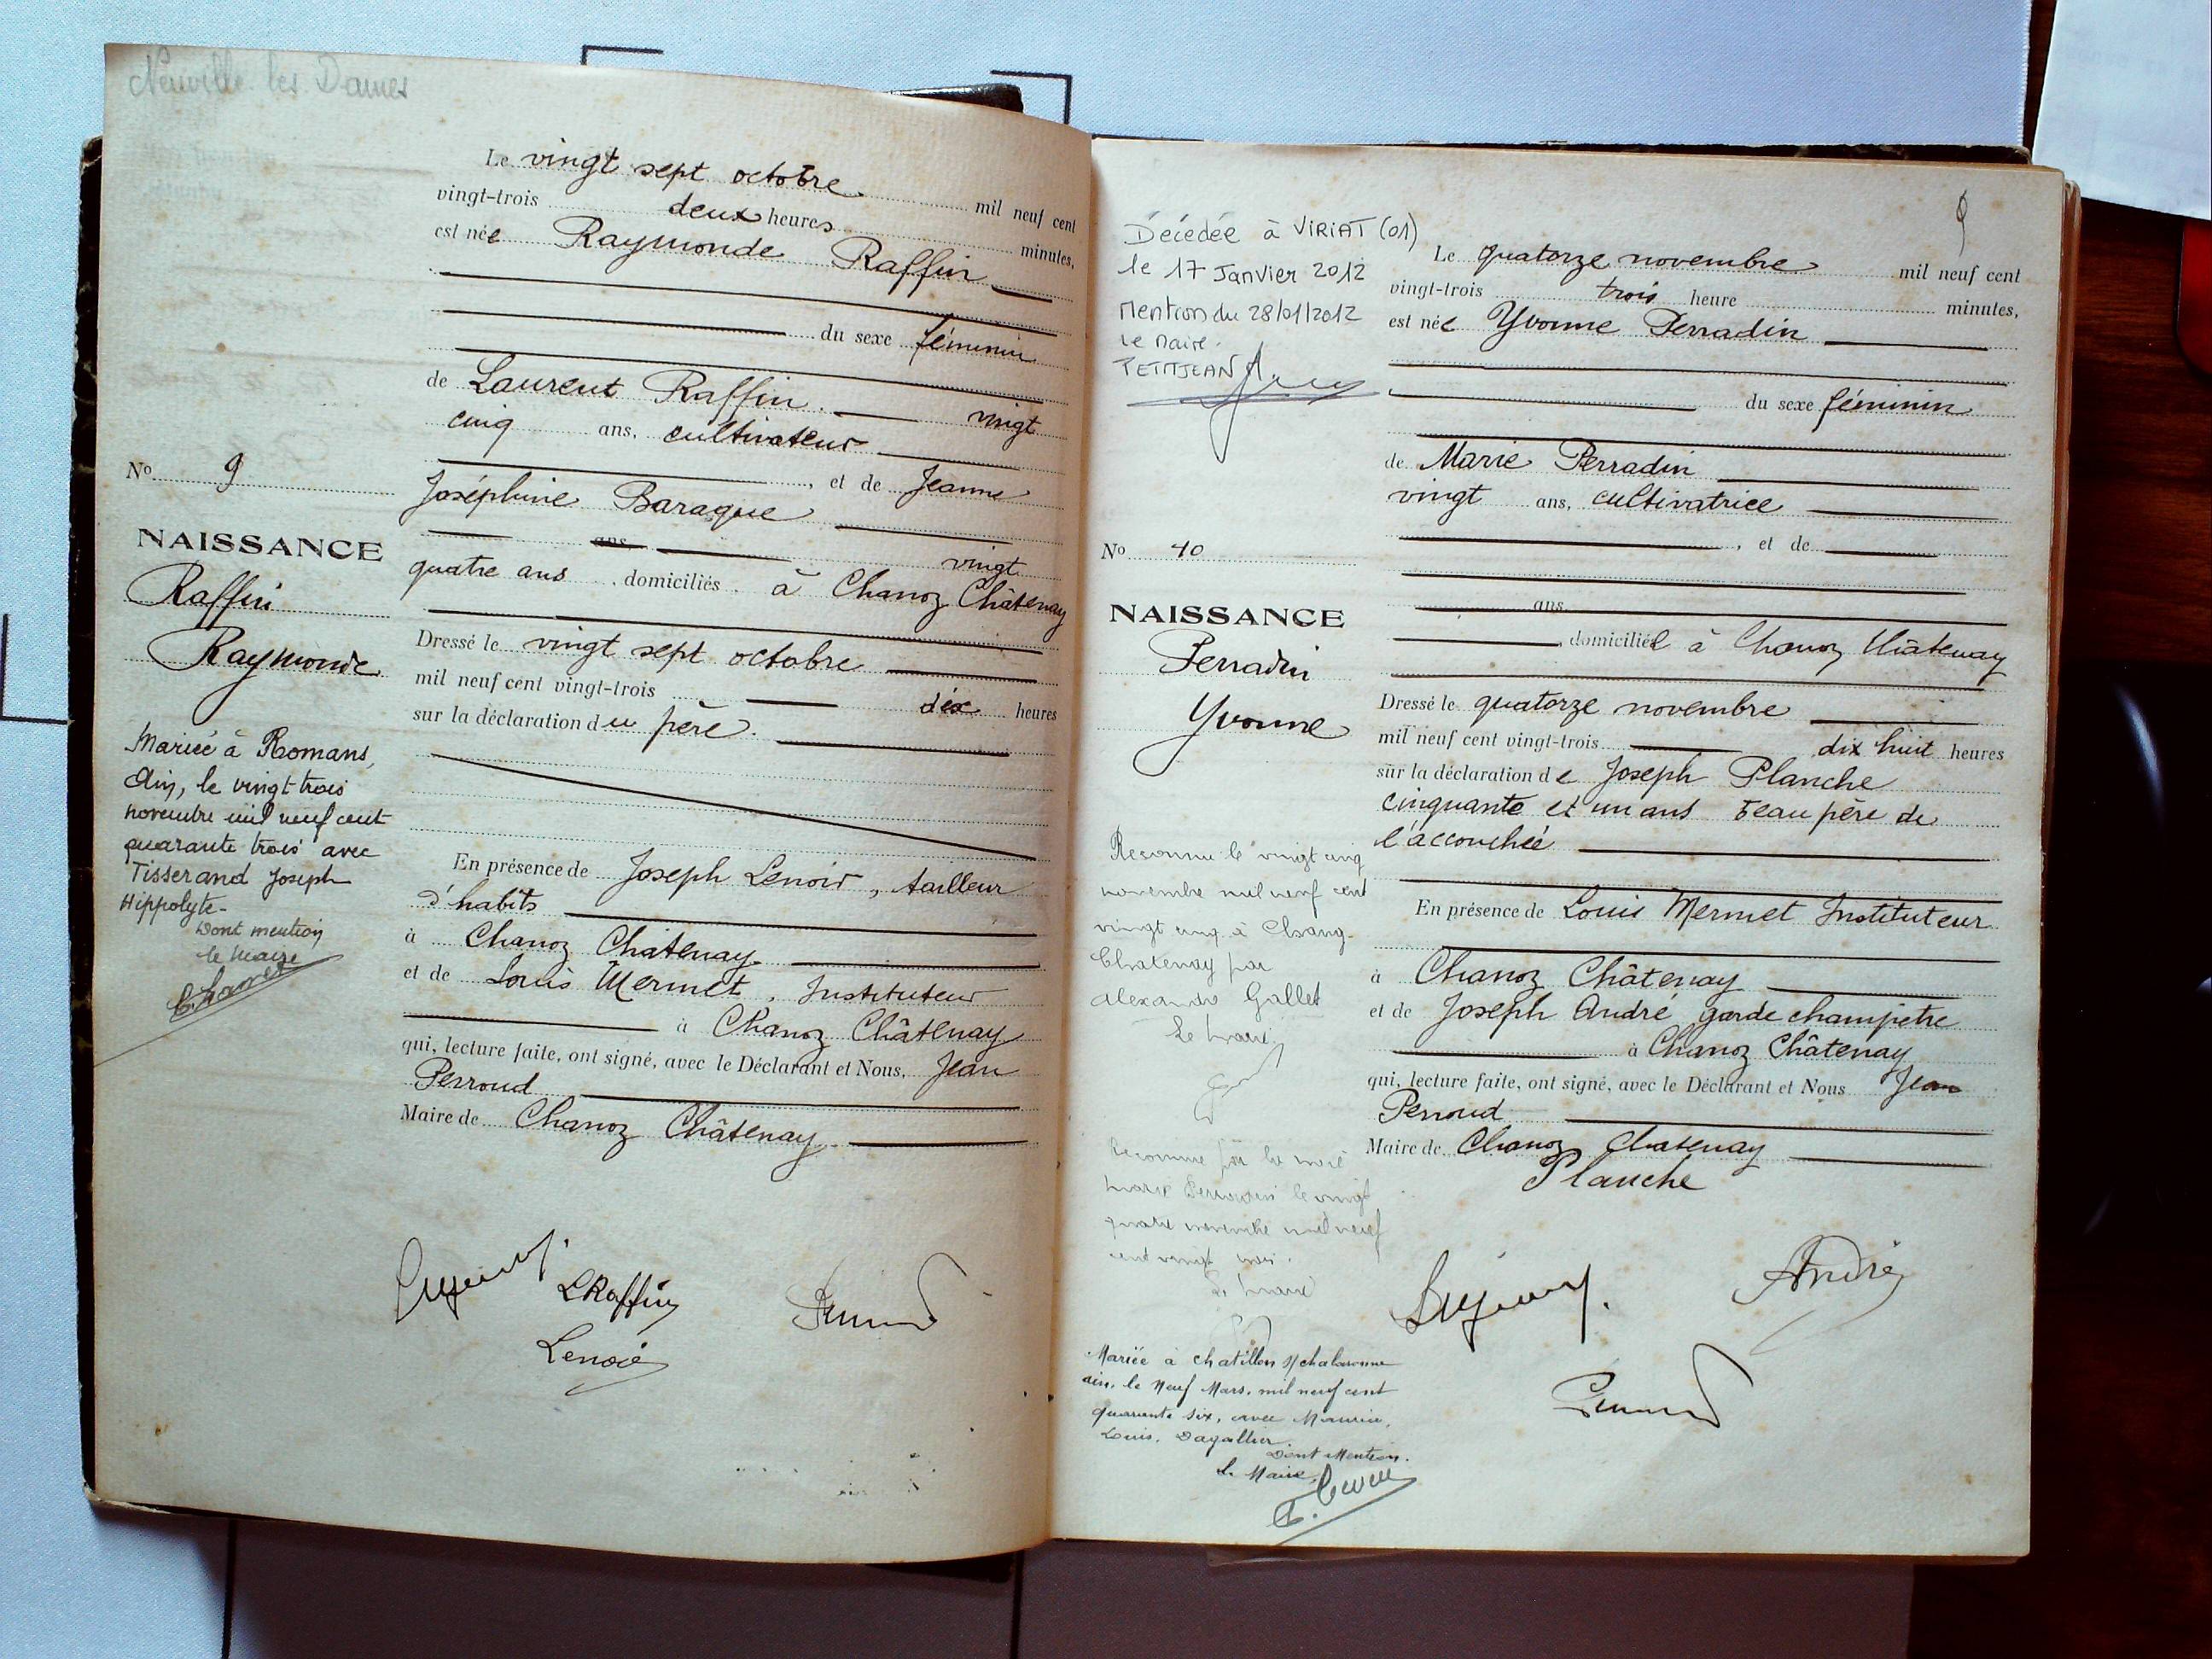 Neuville les Dames
Le vingt sept octobre mil neuf cent
vingt-trois deux heures minutes,
est née Raymonde Raffin
du sexe féminin
de Laurent Raffin vingt
cinq ans, cultivateur
, et de Jeanne
Joséphine Baraque
ans vingt
quatre ans domiciliés à Chanoz Châtenay
Dressé le vingt sept octobre
mil neuf cent vingt-trois dix heures
sur la déclaration du père.
En présence de Joseph Lenoir, tailleur
d'habits
à Chanoz Châtenay
et de Louis Mermet, Instituteur
à Chanoz Châtenay
qui, lecture faite, ont signé, avec le Déclarant et Nous, Jean
Perroud
Maire de Chanoz Châtenay
LRaffin
Lenoir
No 9
NAISSANCE
Raffin
Raymonde
Mariée à Romans,
Ain, le vingt-trois
novembre mil neuf cent
quarante trois avec
Tisserand Joseph
Hippolyte-
Dont mention
le Maire
9
Décédée à VIRIAT (01)
le 17 Janvier 2012
Mention du 28/01/2012
Le Maire.
PETITJEAN A.
No 10
NAISSANCE
Perradin
Yvonne
Reconnue le vingt cinq
novembre mil neuf cent
vingt cinq à Chanoz
Chatenay par
Alexandre Gallet
Le Maire
Reconnue par la mère
Marie Perradin le vingt
quatre novembre mil neuf
cent vingt trois.
Le Maire
Mariée à Chatillon s/chalaronne
ain, le Neuf Mars, mil neuf cent
quarante six, avec Maurice,
Louis, Dagallier
Dont Mention.
Le Maire,
Le quatorze novembre mil neuf cent
vingt-trois trois heure minutes,
est née Yvonne Perradin
du sexe féminin
de Marie Perradin
vingt ans, cultivatrice
, et de
ans
, domiciliée à Chanoz Châtenay
Dressé le quatorze novembre
mil neuf cent vingt-trois dix huit heures
sur la déclaration de Joseph Planche
cinquante et un ans beau père de
l'accouchée
En présence de Louis Mermet Instituteur
à Chanoz Châtenay
et de Joseph André garde champêtre
à Chanoz Châtenay
qui, lecture faite, ont signé, avec le Déclarant et Nous Jean
Perroud
Maire de Chanoz Chatenay
Planche
André